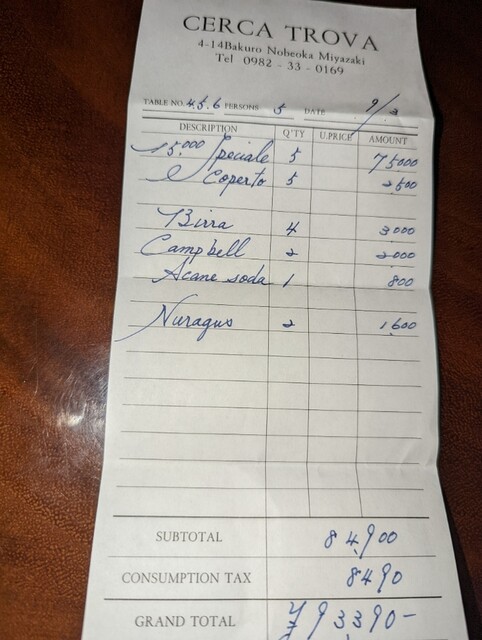 CERCA TROVA
4-14Bakuro Nobeoka Miyazaki
Tel 0982 - 33 - 0169
TABLE NO. 4.5.6 PERSONS 5 DATE 9/2
DESCRIPTION Q'TY U.PRICE AMOUNT
15,000 Speciale 5 75000
Coperto 5 2500
Birra 4 3000
Campbell 2 2000
Acane soda 1 800
Nuragus 2 1600
SUBTOTAL 84900
CONSUMPTION TAX 8490
GRAND TOTAL ¥93390-